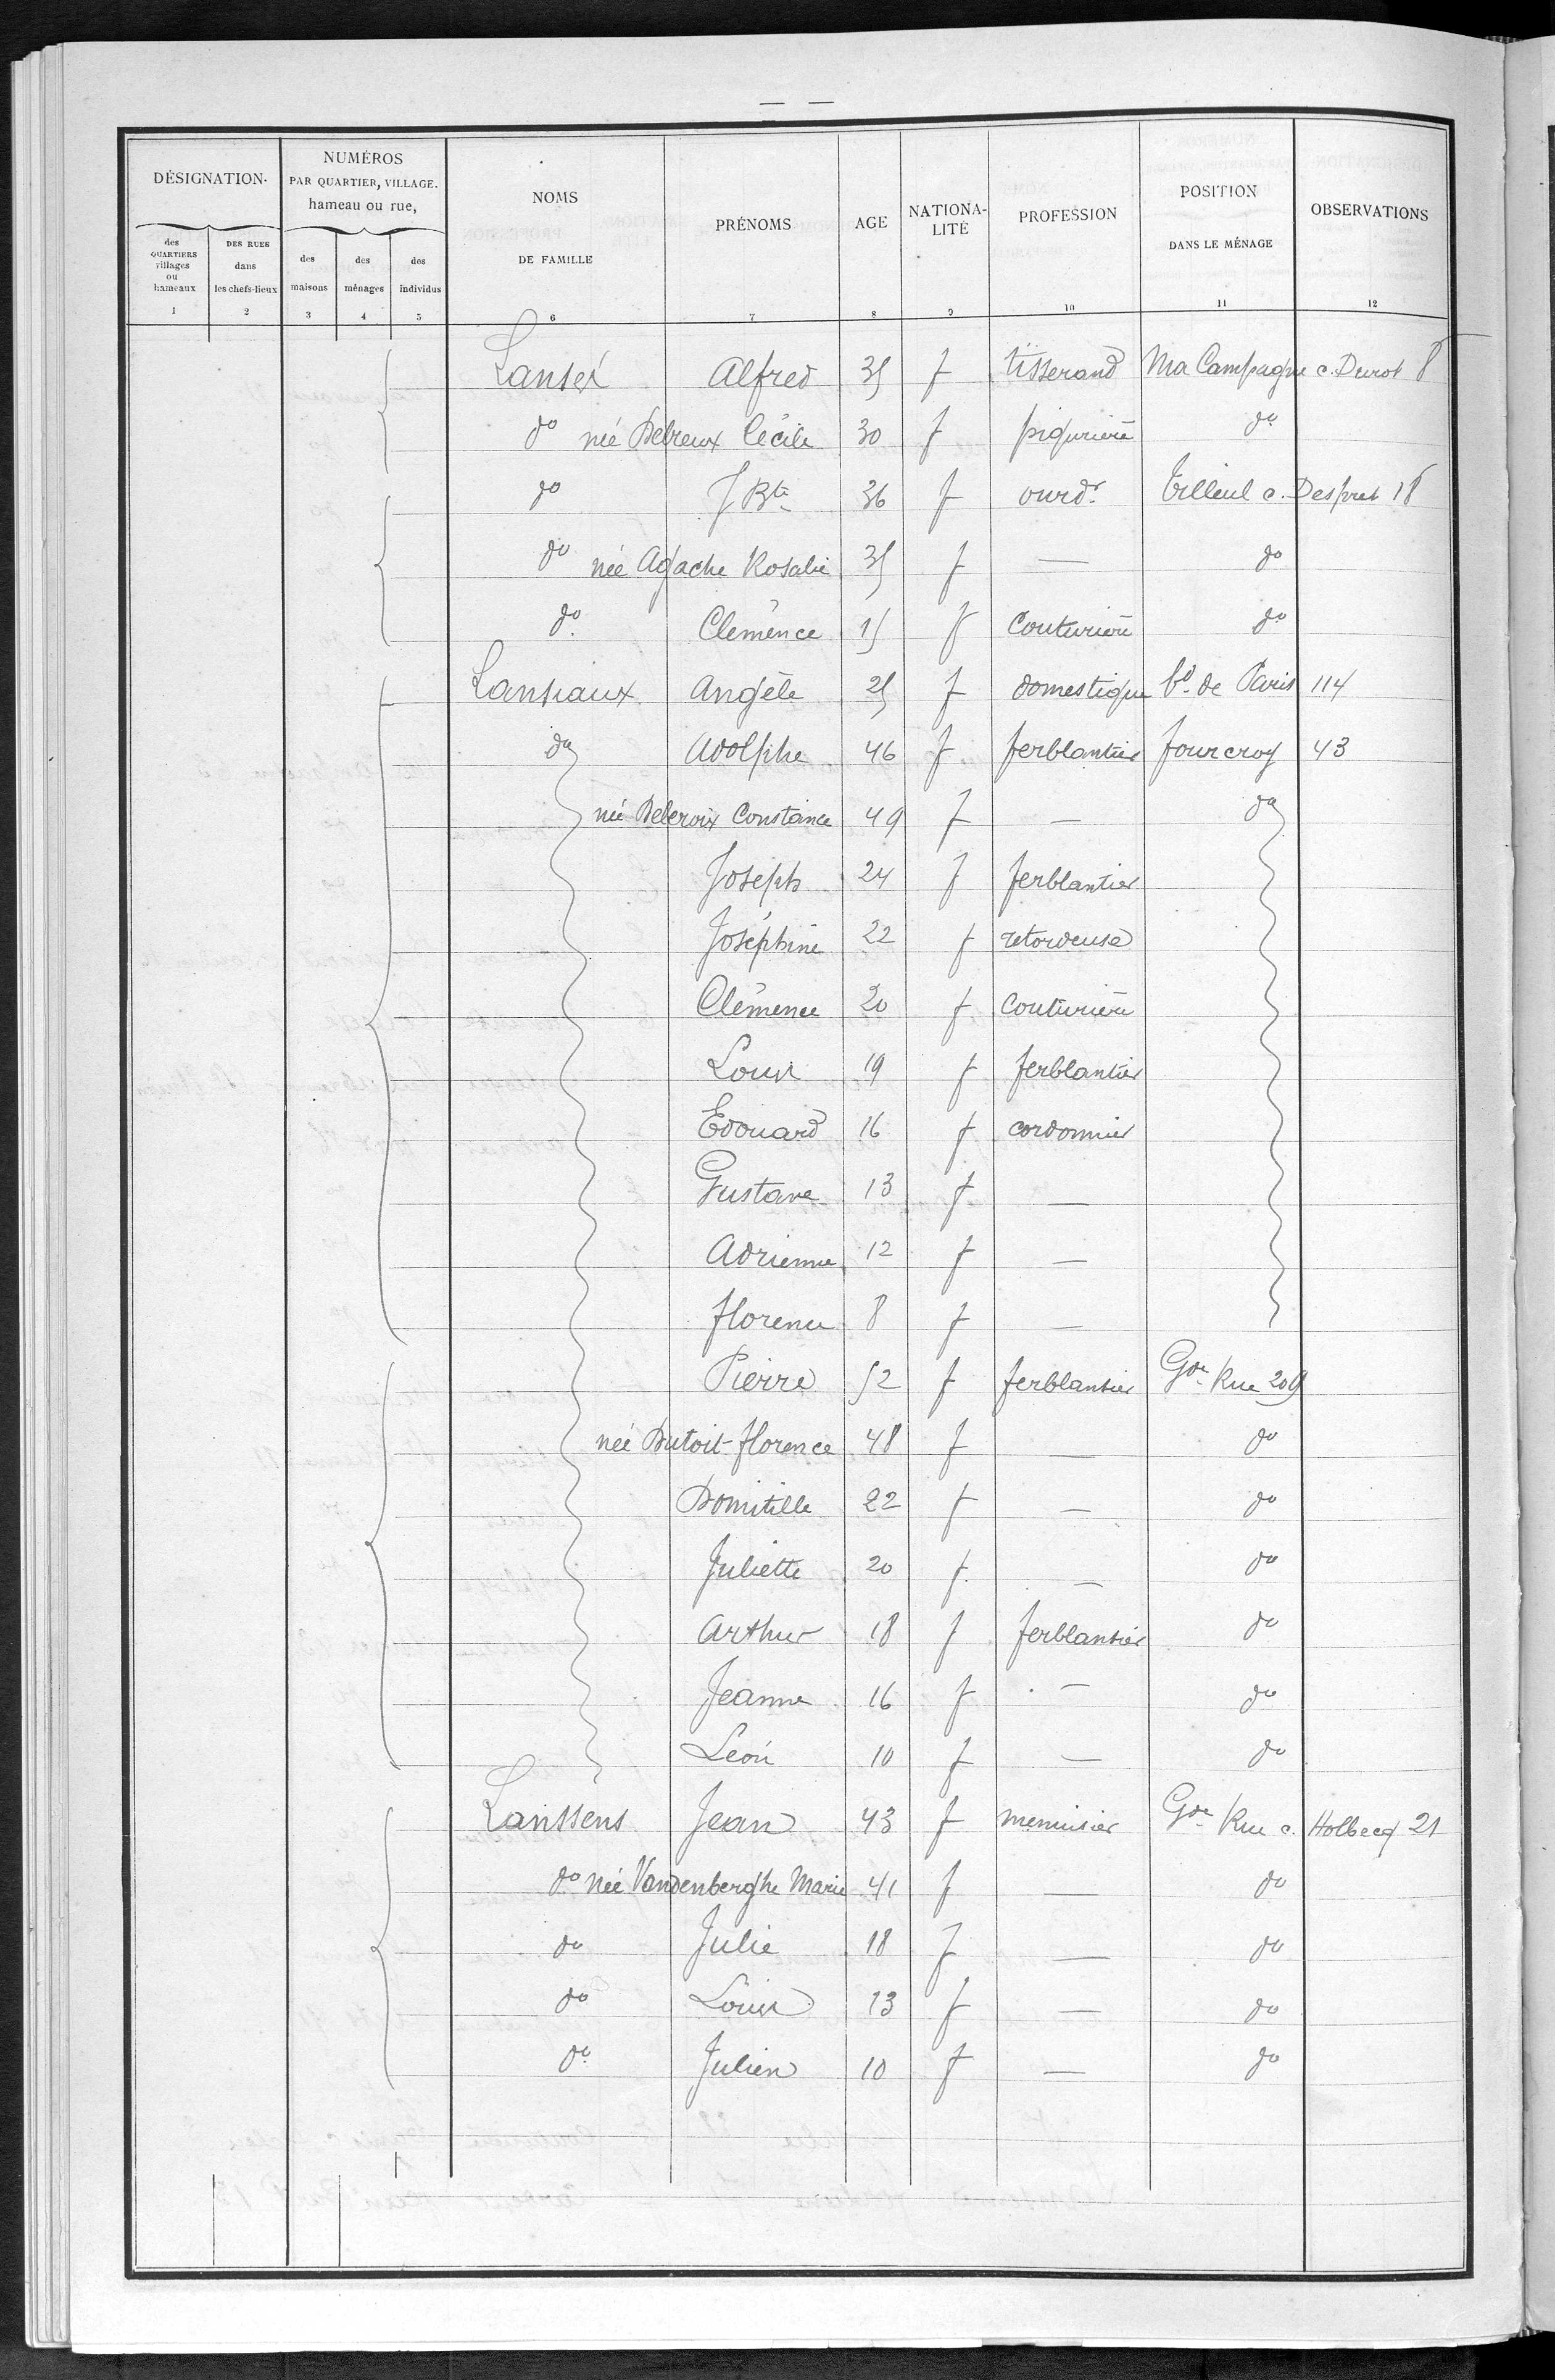 DÉSIGNATION.
des QUARTIERS villages ou hameaux
1
DES RUES dans les chefs-lieux
2
NUMÉROS
PAR QUARTIER, VILLAGE.
hameau ou rue,
des maisons
3
des ménages
4
des individus
5
NOMS
DE FAMILLE
6
PRÉNOMS
7
AGE
8
NATIONA-
LITÉ
9
PROFESSION
10
POSITION
DANS LE MÉNAGE
11
OBSERVATIONS
12
Alfred 35 f tisserand Ma Campagne c. Durot 8
do née Delreux Cécile 30 f piqurière do
do J Bte 36 f ourdr Tilleul c. Despret 18
do née Agache Rosalie 35 f — do
do Clémence 15 f Couturière do
Lansiaux Angèle 25 f domestique bd de Paris 114
do Adolphe 46 f ferblantier fourcroy 43
née Delcroix Constance 49 f — do
Joseph 24 f ferblantier
Joséphine 22 f retordeuse
Clémence 20 f Couturière
Louis 19 f ferblantier
Edouard 16 f cordonnier
Gustave 13 f —
Adrienne 12 f —
florence 8 f —
Pierre 52 f ferblantier Gde Rue 209
née Dutoit florence 48 f — do
Domitille 22 f — do
Juliette 20 f. — do
Arthur 18 f ferblantier do
Jeanne 16 f — do
Léon 10 f — do
Lanssens Jean 43 f menuisier Gde Rue c. Holbecq 21
do née Vandenberghe Marie 41 f — do
do Julie 18 f — do
do Louis 13 f — do
do Julien 10 f — do